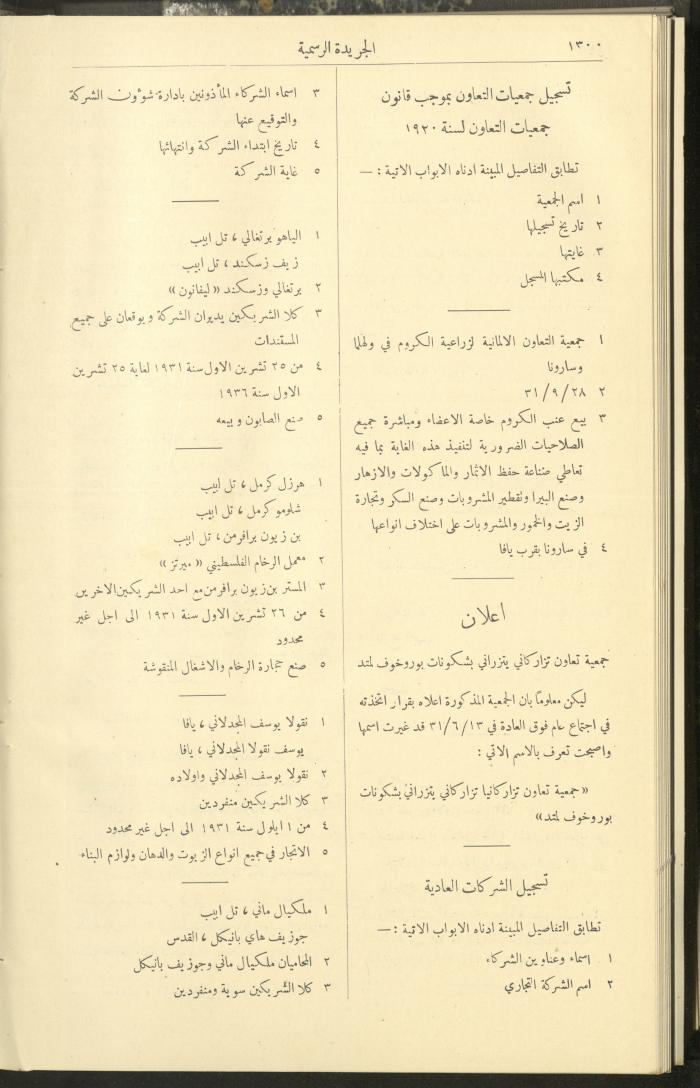 ١٣٠٠
الجريدة الرسمية
تسجيل جمعيات التعاون بموجب قانون
جمعيات التعاون لسنة ١٩٢٠
تطابق التفاصيل المبينة ادناه الابواب الاتية : —
١ اسم الجمعية
٢ تاريخ تسجيلها
٣ غايتها
٤ مكتبها المسجل
١ جمعية التعاون الالمانية لزراعية الكروم في ولهلما
وسارونا
٢ ٢٨ /٩ /٣١
٣ بيع عنب الكروم خاصة الاعضاء ومباشرة جميع
الصلاحيات الضرورية لتنفيذ هذه الغاية بما فيه
تعاطي صناعة حفظ الاثمار والماكولات والازهار
وصنع البيرا وتقطير المشروبات وصنع السكر وتجارة
الزيت والخمور والمشروبات على اختلاف انواعها
٤ في سارونا بقرب يافا
اعلان
جمعية تعاون تزاركاني يتزراني بشكونات بوروخوف لمتد
ليكن معلومًا بان الجمعية المذكورة اعلاه بقرار اتخذته
في اجتماع عام فوق العادة في ١٣ /٦ /٣١ قد غيرت اسمها
واصبحت تعرف بالاسم الاتي :
« جمعية تعاون تزاركانيا تزاركاني يتزراني بشكونات
بوروخوف لمتد»
تسجيل الشركات العادية
تطابق التفاصيل المبينة ادناه الابواب الاتية : —
١ اسماء وعناوين الشركاء
٢ اسم الشركة التجاري
٣ اسماء الشركاء المأذونين بادارة شوءون الشركة
والتوقيع عنها
٤ تاريخ ابتداء الشركة وانتهائها
٥ غاية الشركة
١ الياهو برتغالي ، تل ابيب
زيف زسكند ، تل ابيب
٢ برتغالي وزسكند « ليفانون »
٣ كلا الشريكين يديران الشركة ويوقعان على جميع
المستندات
٤ من ٢٥ تشرين الاول سنة ١٩٣١ لغاية ٢٥ تشرين
الاول سنة ١٩٣٦
٥ صنع الصابون وبيعه
١ هرزل كرمل ، تل ابيب
شلومو كرمل ، تل ابيب
بن زيون برافرمن ، تل ابيب
٢ معمل الرخام الفلسطيني « ميرتز »
٣ المستر بن زيون برافرمن مع احد الشريكين الاخرين
٤ من ٢٦ تشرين الاول سنة ١٩٣١ الى اجل غير
محدود
٥ صنع حجارة الرخام والاشغال المنقوشة
١ نقولا يوسف المجدلاني ، يافا
يوسف نقولا المجدلاني ، يافا
٢ نقولا يوسف المجدلاني واولاده
٣ كلا الشريكين منفردين
٤ من ١ ايلول سنة ١٩٣١ الى اجل غير محدود
٥ الاتجار في جميع انواع الزيوت والدهان ولوازم البناء
١ ملكيال ماني ، تل ابيب
جوزيف هاي بانيكل ، القدس
٢ المحاميان ملكيال ماني وجوزيف بانيكل
٣ كلا الشريكين سوية ومنفردين